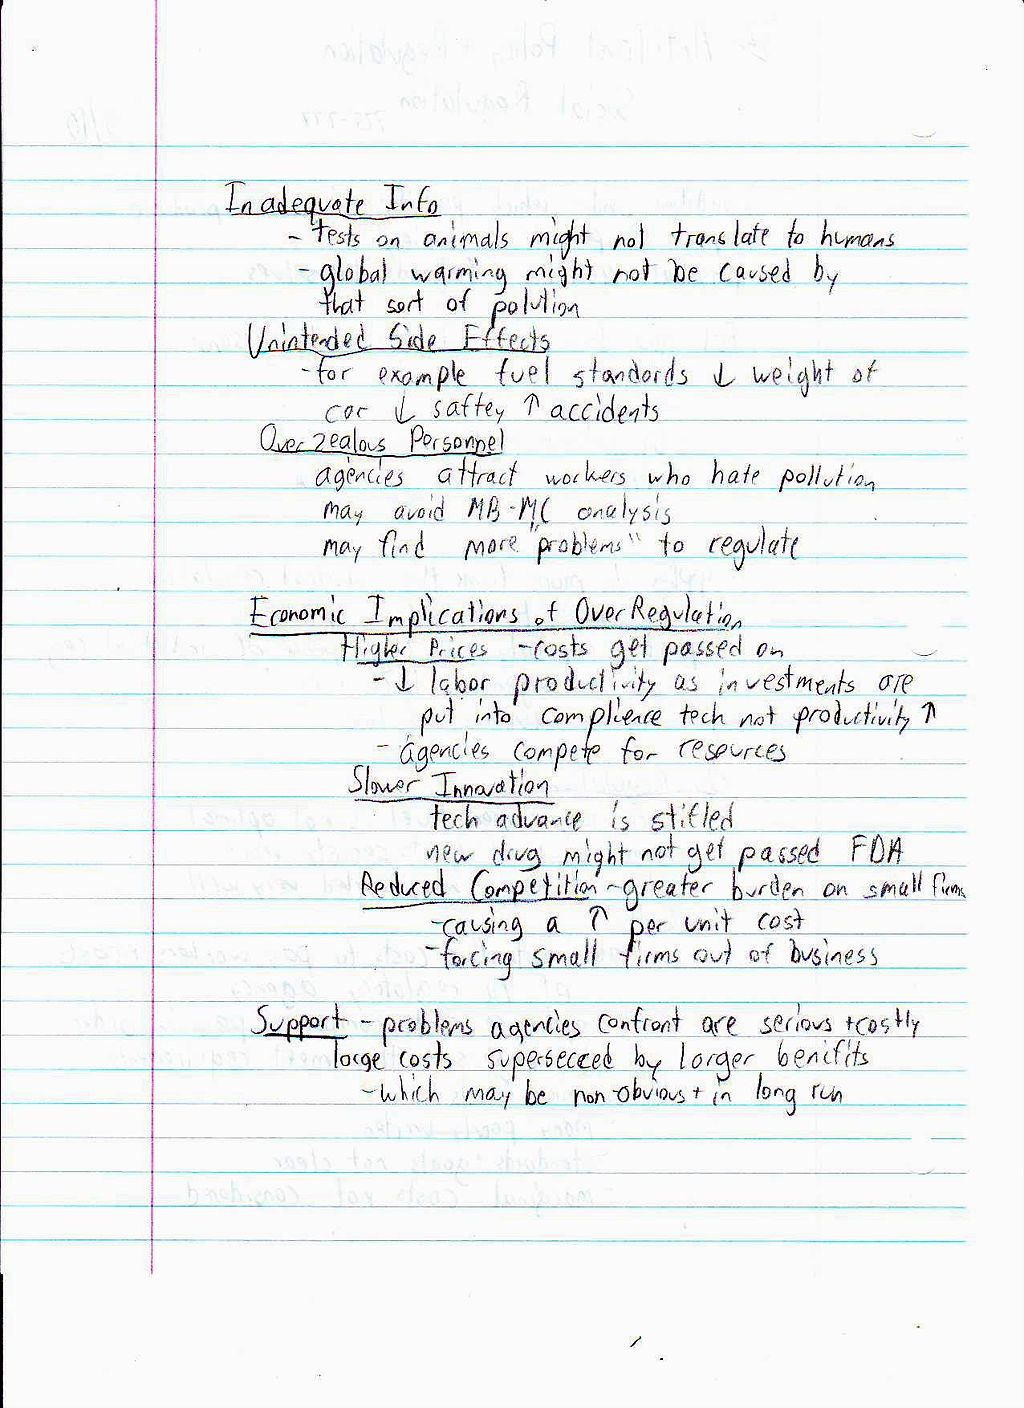 Inadequate Info
- tests on animals might not translate to humans
- global warming might not be caused by
that sort of polution
Unintended Side Effects
- for example fuel standards ↓ weight of
car ↓ saftey ↑ accidents
Over zealous Personnel
agencies attract workers who hate pollution
may avoid MB-MC analysis
may find more "problems" to regulate
Economic Implications of Over Regulation
Higher Prices - costs get passed on
- ↓ labor productivity as investments are
put into complience tech not productivity ↑
- agencies compete for resources
Slower Innovation
tech advance is stifled
new drug might not get passed FDA
Reduced Competition - greater burden on small firms
- causing a ↑ per unit cost
- forcing small firms out of business
Support - problems agencies confront are serious + costly
large costs by larger benifits
- which may be non-obvious + in long run